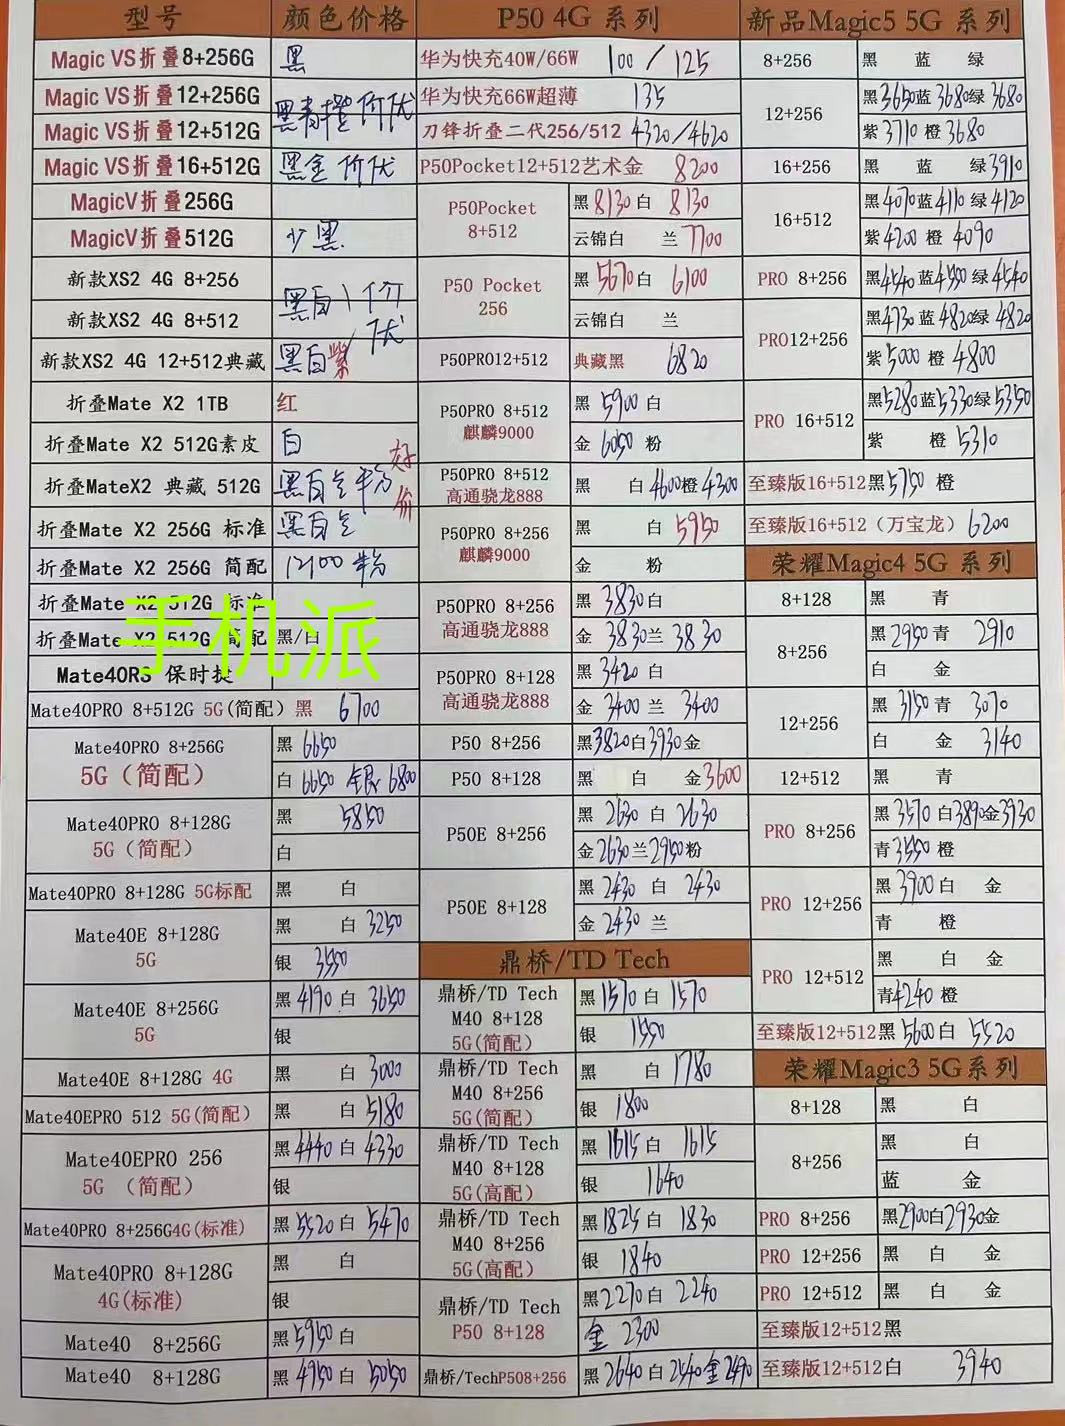 型号 颜色价格
Magic VS折叠8+256G 黑
Magic VS折叠12+256G 黑青橙 价优
Magic VS折叠12+512G
Magic VS折叠16+512G 黑金 价优
MagicV折叠256G
MagicV折叠512G 少黑
新款XS2 4G 8+256 黑白 价优
新款XS2 4G 8+512
新款XS2 4G 12+512典藏 黑白紫
折叠Mate X2 1TB 红
折叠Mate X2 512G素皮 白
折叠MateX2 典藏 512G 好价
折叠Mate X2 256G 标准
折叠Mate X2 256G 简配 12100
折叠Mate X2 512G 标准
折叠Mate X2 512G 简配 黑/白
手机派
Mate40RS 保时捷
Mate40PRO 8+512G 5G(简配) 黑 6700
Mate40PRO 8+256G 5G(简配) 黑 6650
白 6650 银 6800
Mate40PRO 8+128G 5G(简配) 黑 5850
白
Mate40PRO 8+128G 5G标配 黑 白
Mate40E 8+128G 5G 黑 白 3250
银 3550
Mate40E 8+256G 5G 黑 4190 白 3650
银
Mate40E 8+128G 4G 黑 白 3000
Mate40EPRO 512 5G(简配) 黑 白 5180
Mate40EPRO 256 5G (简配) 黑 4440 白 4330
银
Mate40PRO 8+256G4G(标准) 黑 5520 白 5470
Mate40PRO 8+128G 4G(标准) 黑 白
银
Mate40 8+256G 黑 5950 白
Mate40 8+128G 黑 4950 白 5050
P50 4G 系列
华为快充40W/66W 100 / 125
华为快充66W超薄 135
刀锋折叠二代256/512 4320/4620
P50Pocket12+512艺术金 8200
P50Pocket 8+512 黑 8130 白 8130
云锦白 兰 7700
P50 Pocket 256 黑 5670 白 6100
云锦白 兰
P50PRO12+512 典藏黑 6820
P50PRO 8+512 麒麟9000 黑 5900 白
金 6050 粉
P50PRO 8+512 高通骁龙888 黑 白 4600 橙 4300
P50PRO 8+256 麒麟9000 黑 白 5950
金 粉
P50PRO 8+256 高通骁龙888 黑 3830 白
金 3830 兰 3830
P50PRO 8+128 高通骁龙888 黑 3420 白
金 3400 兰 3400
P50 8+256 黑 3820 白 3930 金
P50 8+128 黑 白 金 3600
P50E 8+256 黑 2630 白 2630
金 2630 兰 2950 粉
P50E 8+128 黑 2430 白 2430
金 2430 兰
鼎桥/TD Tech
鼎桥/TD Tech M40 8+128 5G(简配) 黑 1570 白 1570
银 1550
鼎桥/TD Tech M40 8+256 5G(简配) 黑 白 1780
银 1800
鼎桥/TD Tech M40 8+128 5G(高配) 黑 1615 白 1615
银 1640
鼎桥/TD Tech M40 8+256 5G(高配) 黑 1825 白 1830
银 1840
鼎桥/TD Tech P50 8+128 黑 2270 白 2240
金 2300
鼎桥/TechP508+256 黑 2640 白 2540 金 2490
新品Magic5 5G 系列
8+256 黑 蓝 绿
12+256 黑 3650 蓝 3680 绿 3680
紫 3710 橙 3680
16+256 黑 蓝 绿 3910
16+512 黑 4070 蓝 4110 绿 4120
紫 4200 橙 4090
PRO 8+256 黑 4540 蓝 4550 绿 4540
PRO12+256 黑 4730 蓝 4820 绿 4820
紫 5000 橙 4800
PRO 16+512 黑 5280 蓝 5330 绿 5350
紫 橙 5310
至臻版16+512 黑 5750 橙
至臻版16+512 (万宝龙) 6200
荣耀Magic4 5G 系列
8+128 黑 青
8+256 黑 2950 青 2910
白 金
12+256 黑 3150 青 3070
白 金 3140
12+512 黑 青
PRO 8+256 黑 3570 白 3890 金 3930
青 3550 橙
PRO 12+256 黑 3900 白 金
青 橙
PRO 12+512 黑 白 金
青 4240 橙
至臻版12+512 黑 5600 白 5520
荣耀Magic3 5G系列
8+128 黑 白
8+256 黑 白
蓝 金
PRO 8+256 黑 2900 白 2930 金
PRO 12+256 黑 白 金
PRO 12+512 黑 白 金
至臻版12+512黑
至臻版12+512白 3940